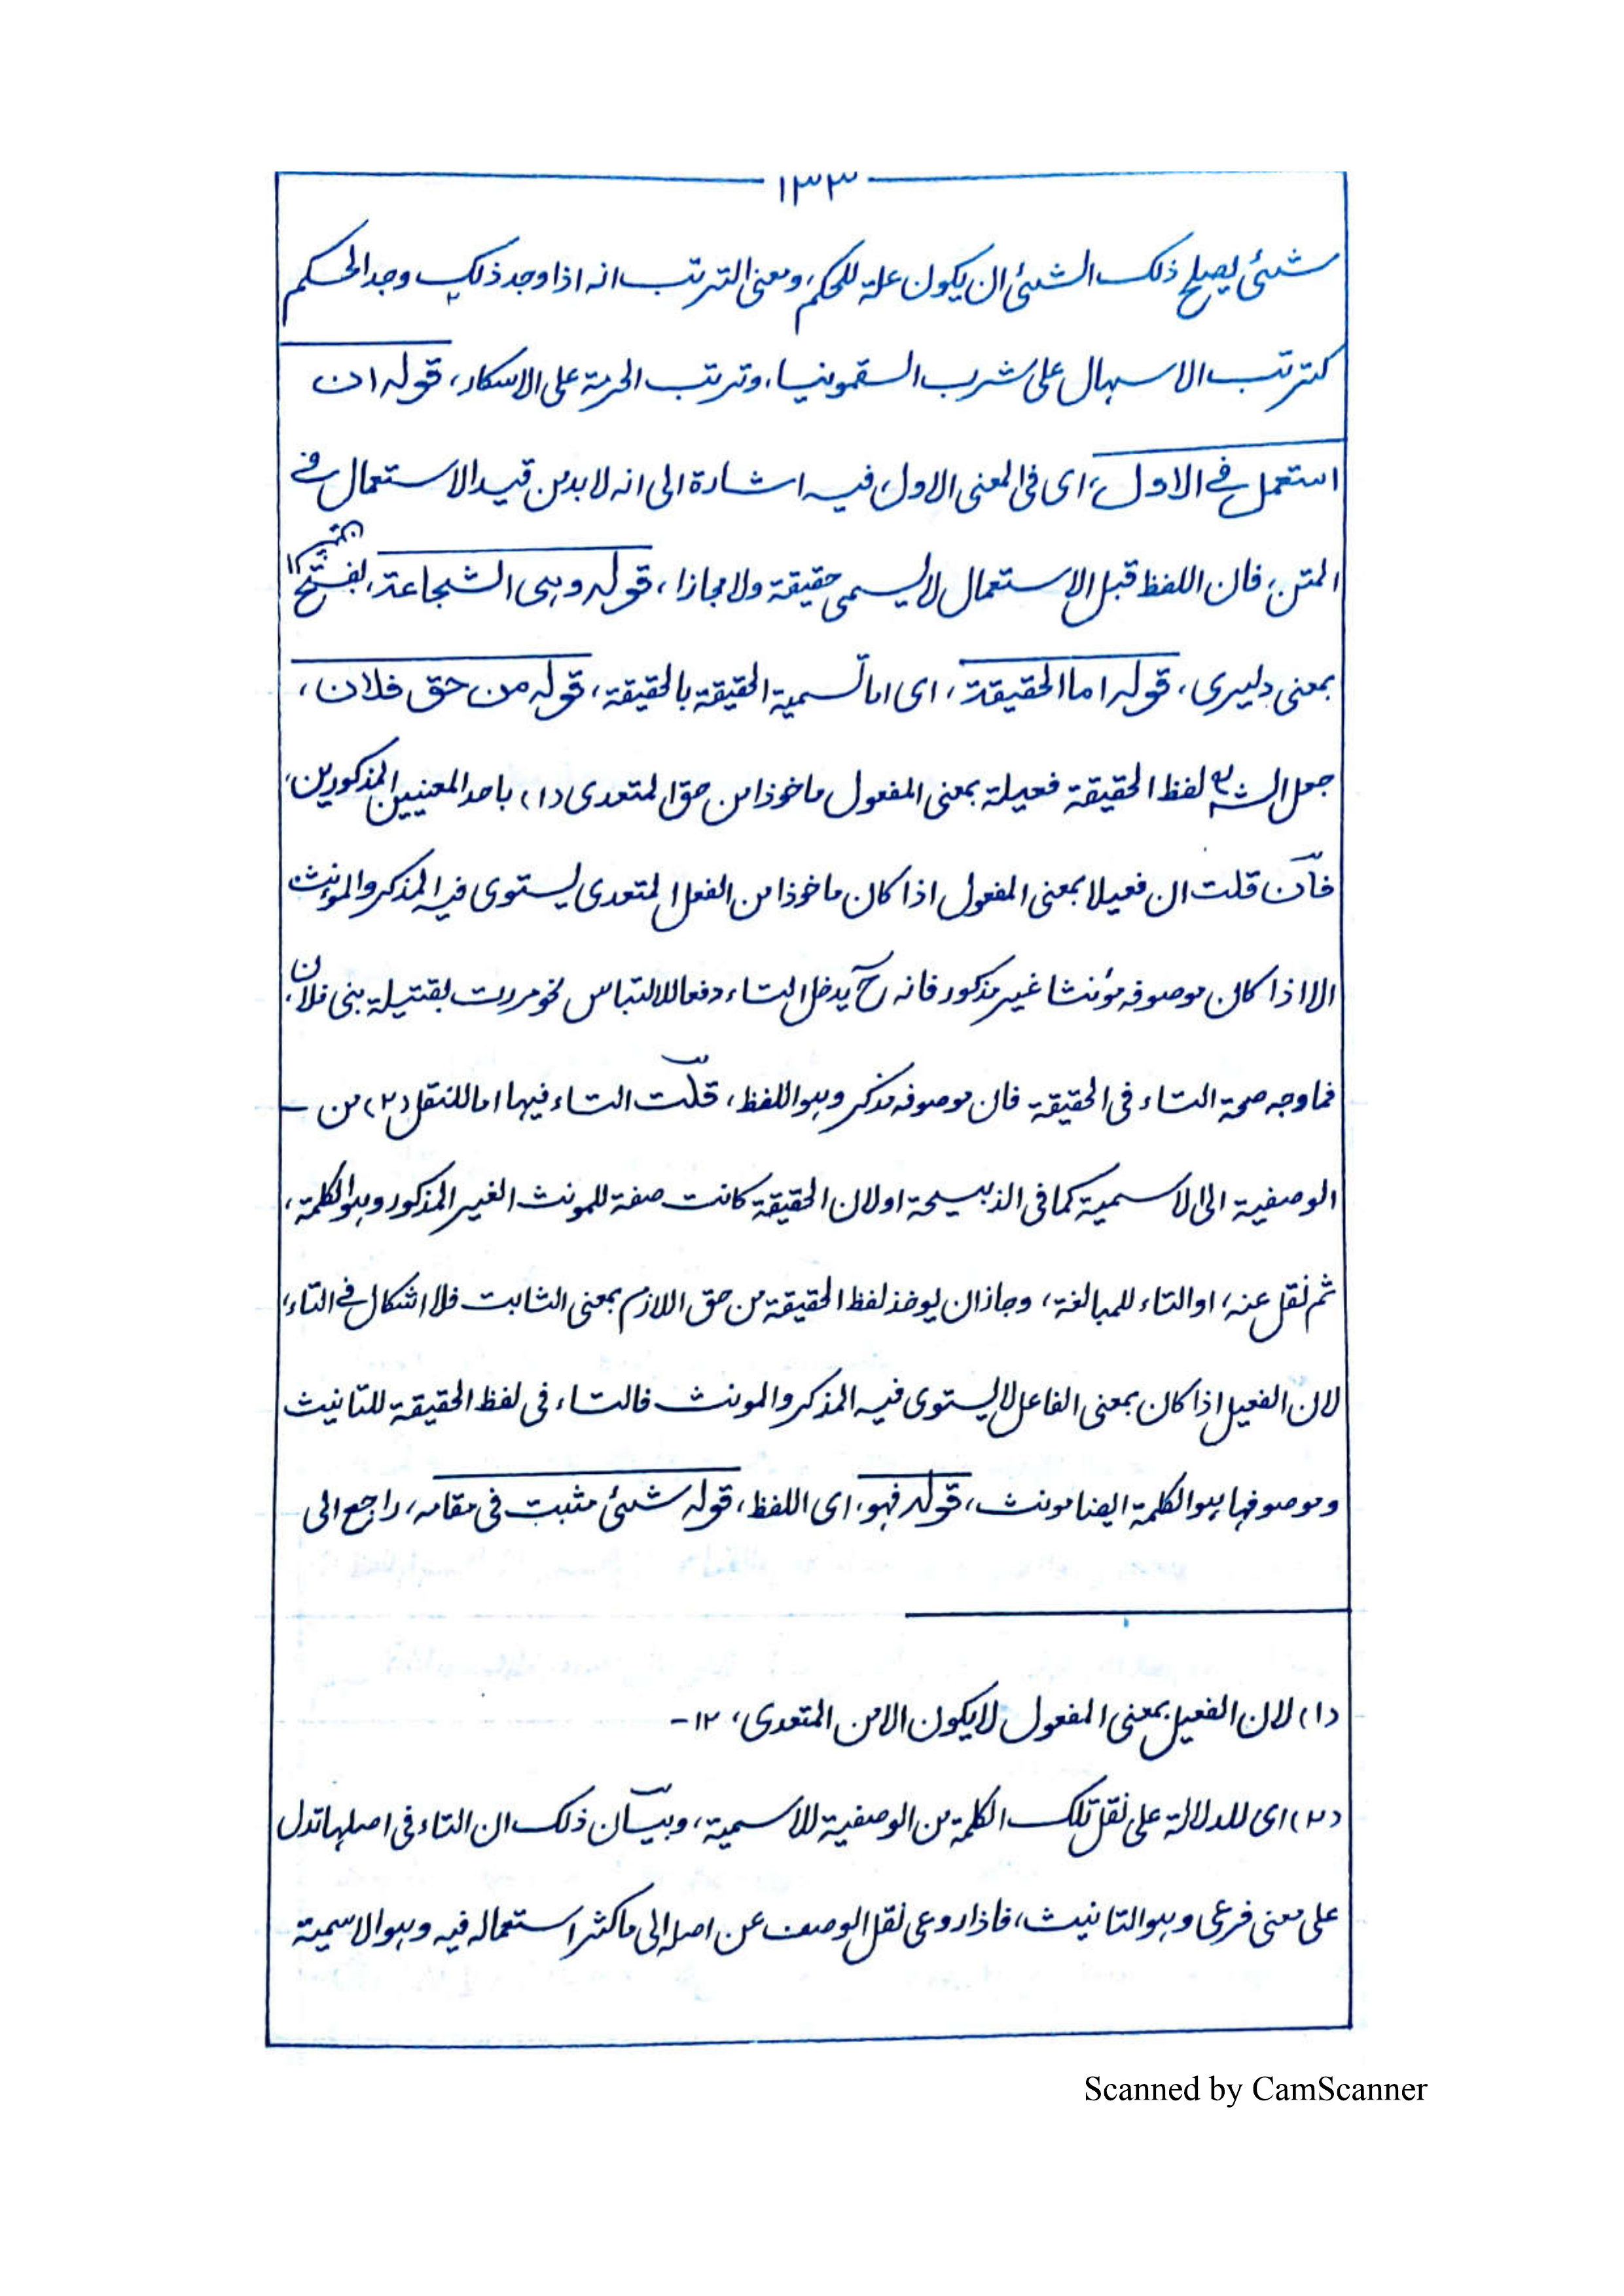 ١٣٣
شئی يصلح ذلك الشئی ان يكون علة للحكم، ومعنی الترتب انه اذا وجد ذلك وجد الحكم
كترتب الاسهال علی شرب السقمونيا، وترتب الحرمة علی الاسكار، قوله ان
استعمل فی الاول، ای فی المعنی الاول، فيه اشارة الی انه لا بد من قيد الاستعمال فی
المتن، فان اللفظ قبل الاستعمال لا يسمی حقيقة ولا مجازا، قوله وهی الشجاعة، بفتح
بمعنی دليری، قوله اما الحقيقة، ای اما تسمية الحقيقة بالحقيقة، قوله من حق فلان،
جعل الشه لفظ الحقيقة فعيلة بمعنی المفعول ماخوذا من حق المتعدی (١) باحد المعنيين المذكورين،
فان قلت ان فعيلا بمعنی المفعول اذا كان ماخوذا من الفعل المتعدی يستوی فيه المذكر والمؤنث
الا اذا كان موصوفه مؤنثا غير مذكور فانه ح يدخل التاء دفعا للالتباس نحو مررت بقتيلة بنی فلان،
فما وجه صحة التاء فی الحقيقة فان موصوفه مذكر وهو اللفظ، قلت التاء فيها اما للنقل (٢) من
الوصفية الی الاسمية كما فی الذبيحة او لان الحقيقة كانت صفة للمونث الغير المذكور وهو الكلمة،
ثم نقل عنه، او التاء للمبالغة، وجاز ان يوخذ لفظ الحقيقة من حق اللازم بمعنی الثابت فلا اشكال فی التاء،
لان الفعيل اذا كان بمعنی الفاعل لا يستوی فيه المذكر والمونث فالتاء فی لفظ الحقيقة للتانيث
وموصوفها هو الكلمة ايضا مونث، قوله فهو، ای اللفظ، قوله شئی مثبت فی مقامه، راجع الی
(١) لان الفعيل بمعنی المفعول لا يكون الا من المتعدی، ١٢-
(٢) ای للدلالة علی نقل تلك الكلمة من الوصفية للاسمية، وبيان ذلك ان التاء فی اصلها تدل
علی معنی فرعی وهو التانيث، فاذا روعی نقل الوصف عن اصله الی ما كثر استعماله فيه وهو الاسمية
Scanned by CamScanner